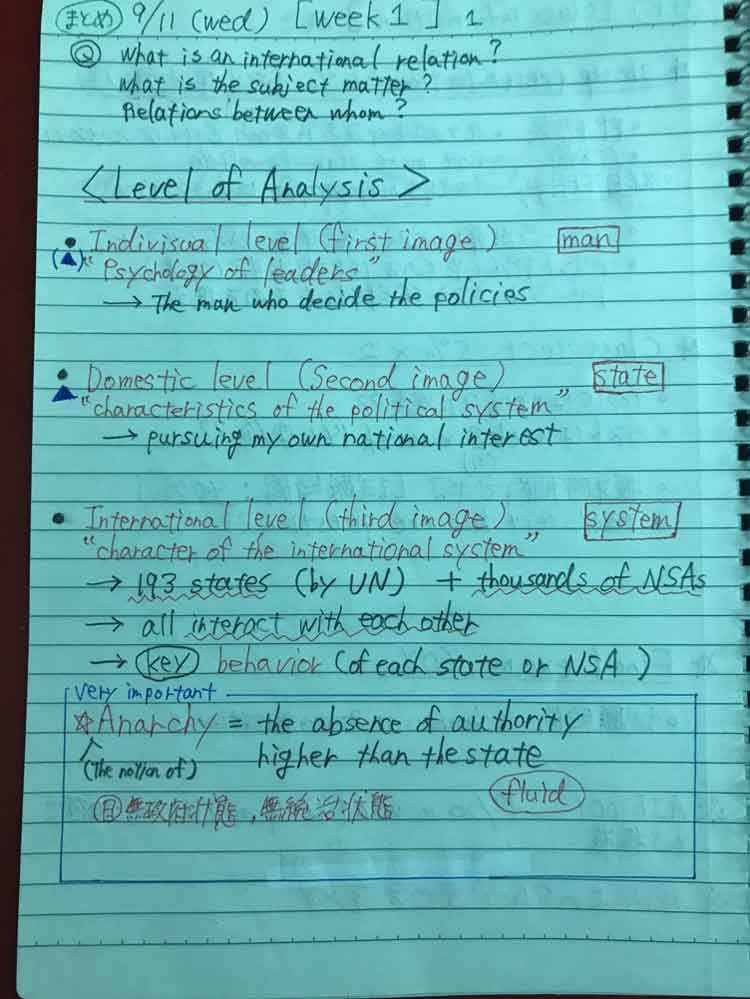 まとめ 9/11 (wed) [week 1] 1
Q What is an international relation?
What is the subject matter?
Relations between whom?
<Level of Analysis>
• Indivisual level (first image) man
(▲) "Psychology of leaders"
→ The man who decide the policies
• Domestic level (Second image) state
▲ "characteristics of the political system"
→ pursuing my own national interest
• International level (third image) system
"character of the international system"
→ 193 states (by UN) + thousands of NSAs
→ all interact with each other
→ key behavior (of each state or NSA)
very important
☆Anarchy = the absence of authority
(The notion of) higher than the state
fluid
(日)無政府状態,無統治状態